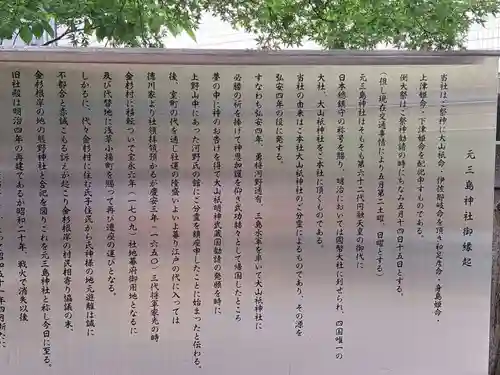 元三島神社御縁起
当社はご祭神に大山祇命・伊佐那岐命を頂き和足彦命・身島姫命・
上津姫命・下津姫命を配祀申すものである。
例大祭はご祭神勧請の時にちなみ五月十四日十五日とする。
(但し現在交通事情により五月第二土曜、日曜とする)
元三島神社はそもそも第六十二代円融天皇の御代に
日本総鎮守の称号を賜り、明治においては國幣大社に列せられ、四国唯一の
大社、大山祇神社をご本社に頂くものである。
当社の由来はご本社大山祇神社のご分霊によるものであり、その源を
弘安四年の役に発する。
すなわち弘安四年、勇将河野通有、三島水軍を率いて大山祇神社に
必勝の祈を捧げて神恩加護を仰ぎ武功赫々として帰国したところ
夢の中に神のお告げを得て大山祇明神武蔵国勧請の発願を時に
上野山中にあった河野氏の館にご分霊を鎮座申したことに始まったと伝わる。
後、室町の代を通じ社運の隆盛いよいよ上慕り江戸の代に入っては
徳川家より社領拝領預かるが慶安三年(一六五〇)三代将軍家光の時
金杉村に移転ついで宝永六年(一七〇九)社地幕府御用地となるに
及び代替地に浅草小揚町を賜って再び遷座の運びとなる。
しかるに、代々金杉村に住む氏子住民から氏神様の地元遊離は誠に
不都合と赤誠こもる訴えが起こり金杉根岸の村民相寄り協議の末、
金杉根岸の地の熊野神社と合祀を図りこれを元三島神社と称し今日に至る。
旧社殿は明治四年の再建であるが昭和二十年、戦火で消失以後